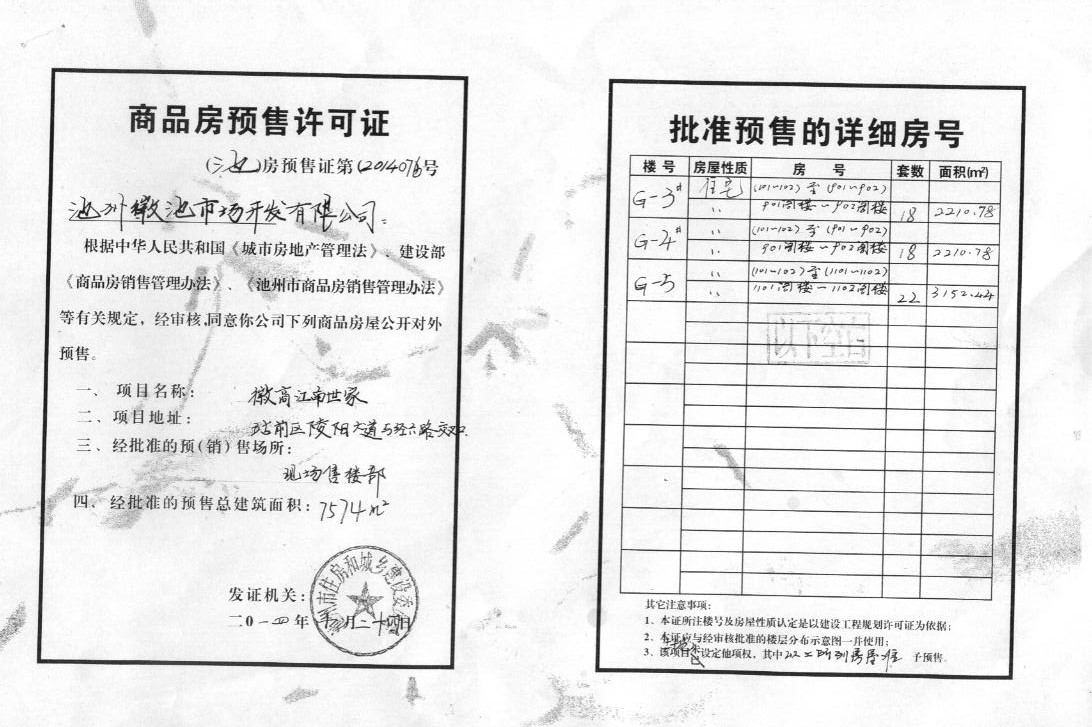 商品房预售许可证
(池)房预售证第(2014076)号
池州徽池市场开发有限公司:
根据中华人民共和国《城市房地产管理法》、建设部
《商品房销售管理办法》、《池州市商品房销售管理办法》
等有关规定，经审核,同意你公司下列商品房屋公开对外
预售。
一、项目名称: 徽商江南世家
二、项目地址: 站前区陵阳大道与经六路交叉口
三、经批准的预(销)售场所:
现场售楼部
四、经批准的预售总建筑面积: 7574m²
发证机关:
池州市住房和城乡建设委员会
二0一四年 月二十四日
批准预售的详细房号
楼号 房屋性质 房号 套数 面积(m²)
G-3# 住宅 (101~102)至(901~902)
〃 901阁楼~902阁楼 18 2210.78
G-4# 〃 (101~102)至(901~902)
〃 901阁楼~902阁楼 18 2210.78
G-5 〃 (101~102)至(1101~1102)
〃 1101阁楼~1102阁楼 22 3152.44
以下空白
其它注意事项:
1、本证所注楼号及房屋性质认定是以建设工程规划许可证为依据;
2、本证应与经审核批准的楼层分布示意图一并使用;
3、该项目未设定他项权，其中以上所列房屋准予预售。